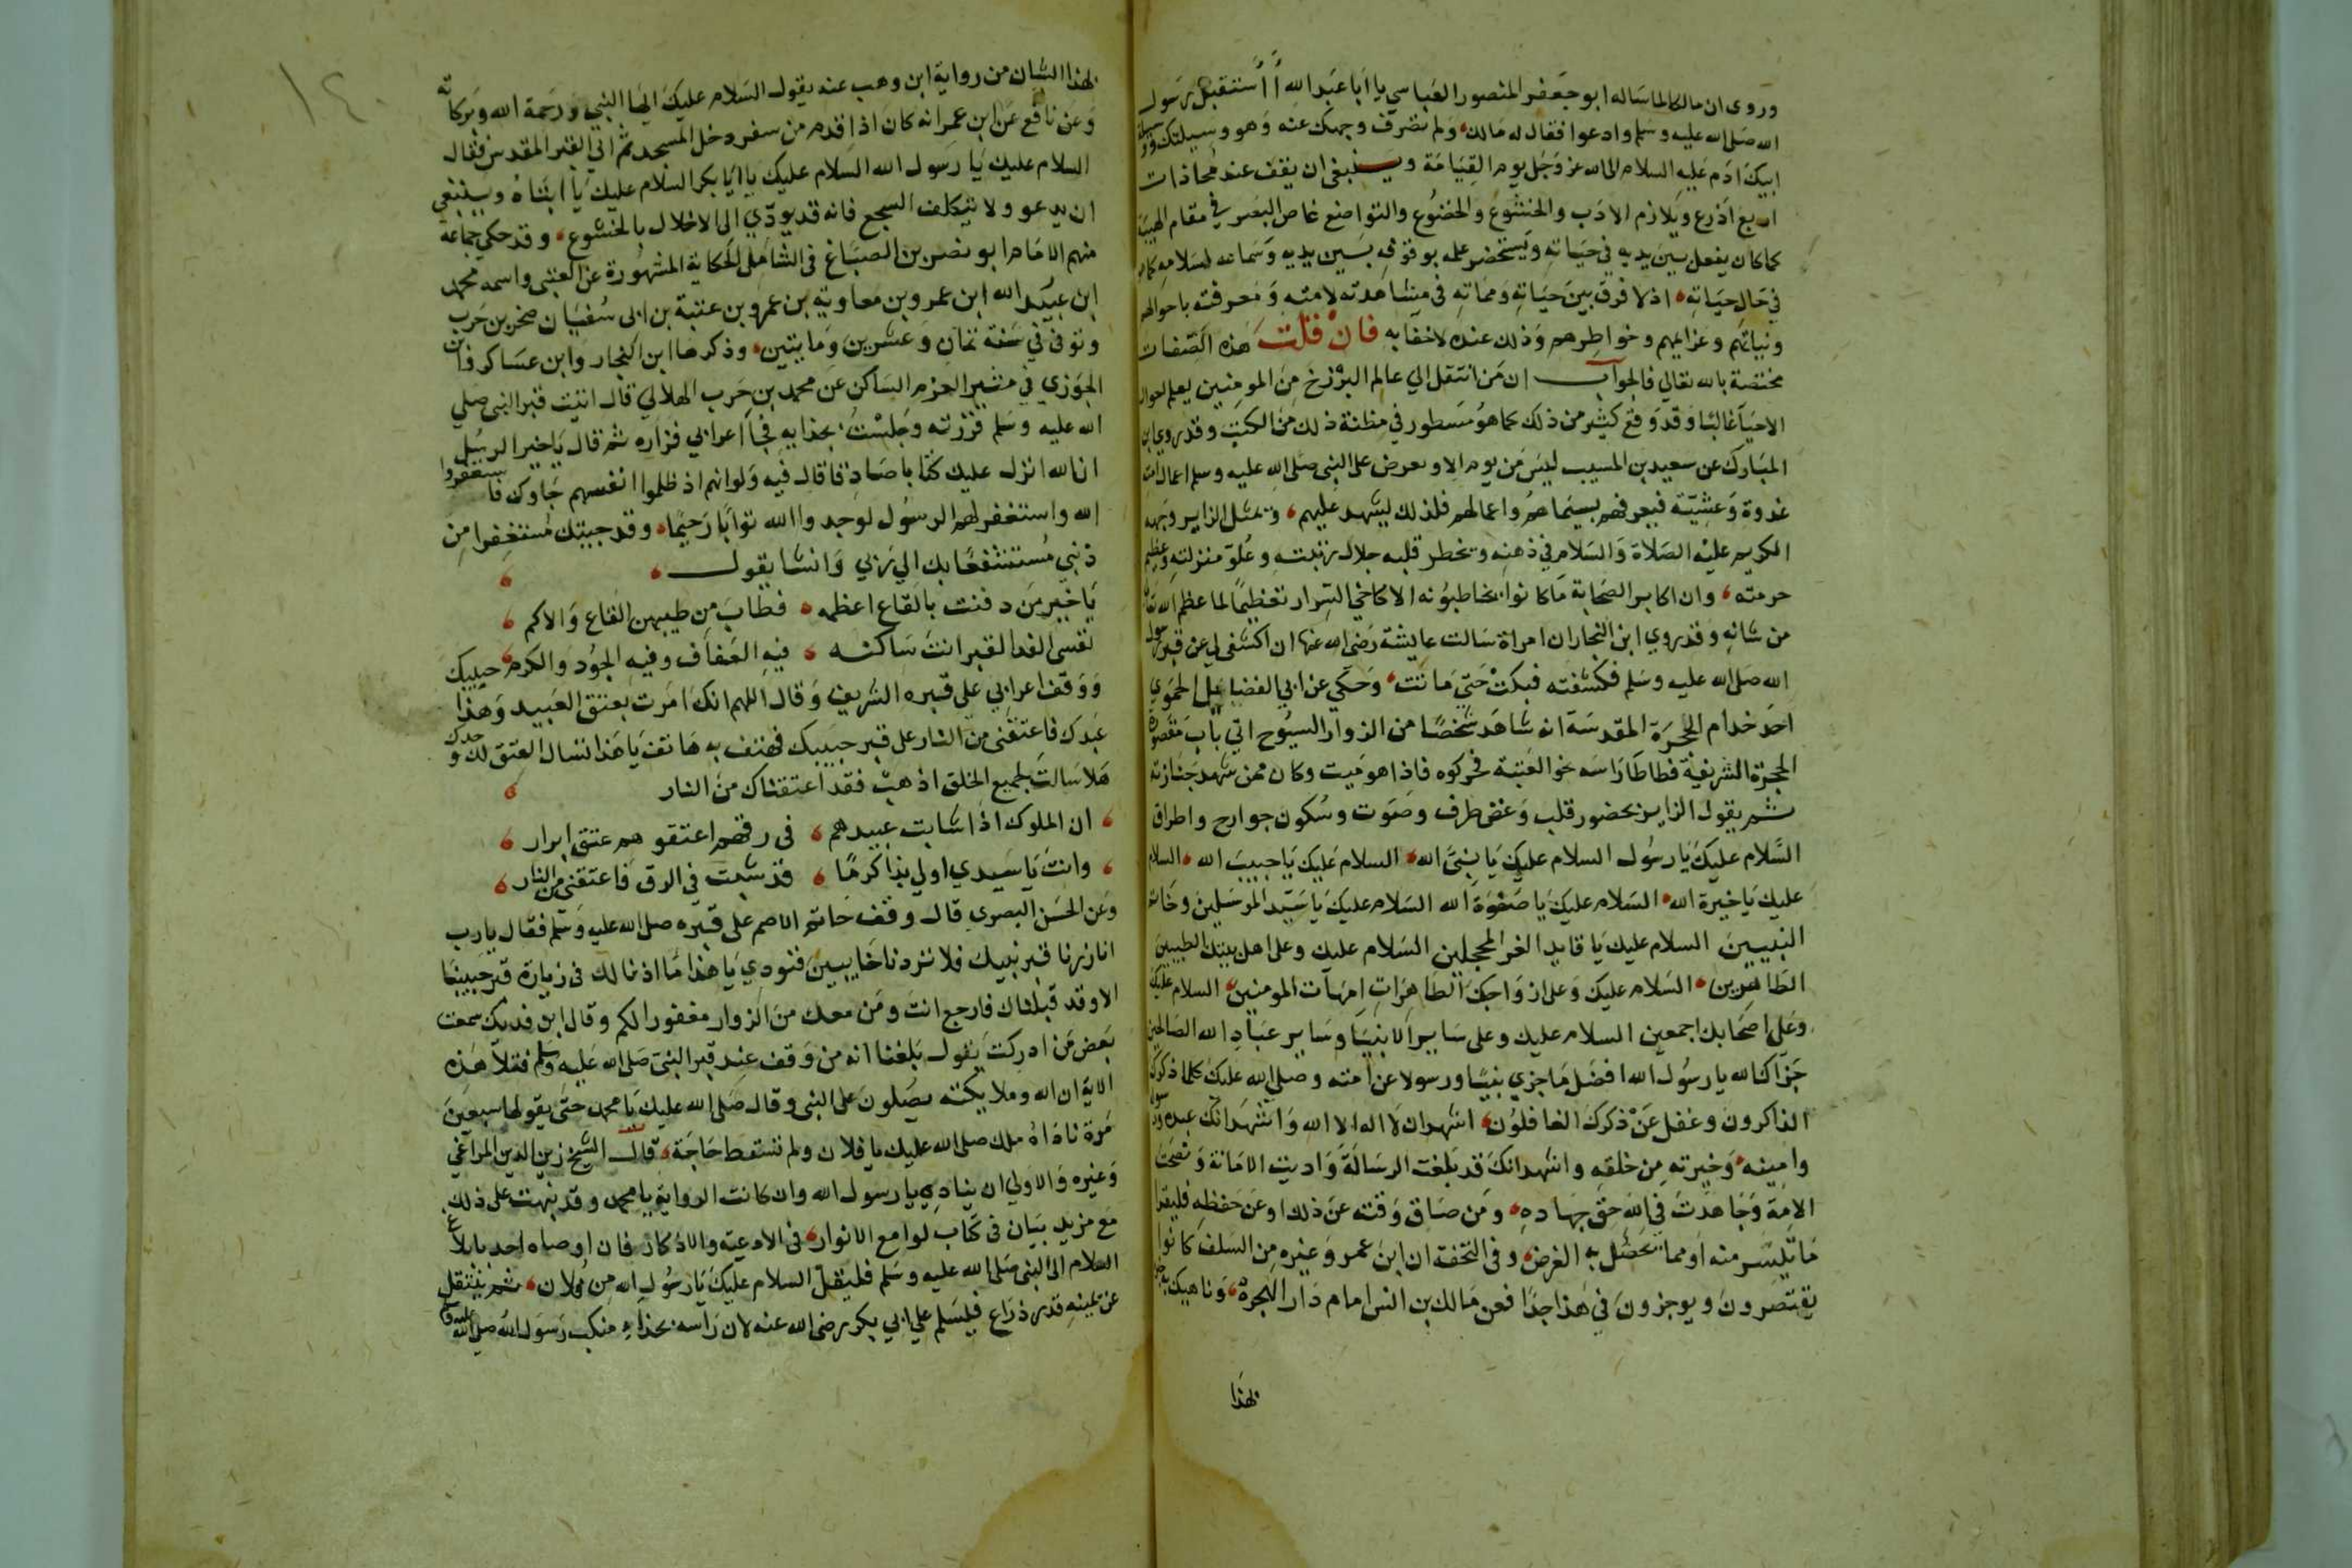 وروى ان مالكا لما ساله ابو جعفر المنصور العباسي يا ابا عبد الله أأستقبل رسول
الله صلى الله عليه وسلم وادعوا فقال له مالك ولم تصرف وجهك عنه وهو وسيلتك ووسيلة
ابيك ادم عليه السلام الى الله عز وجل يوم القيامة وينبغى ان يقف عند محاذات
اربع اذرع ويلازم الادب والخشوع والخضوع والتواضع غاض البصر في مقام الهيبة
كما كان يفعل بين يديه في حياته ويستحضر علمه بوقوفه بين يديه وسماعه لسلامه كما هو
في حال حياته اذ لا فرق بين حياته ومماته في مشاهدته لامته ومعرفته باحوالهم
ونياتهم وعزايمهم وخواطرهم وذلك عنده لاخفا به فان قلت هذه الصفات
مختصة بالله تعالي فالجواب ان من انتقل الي عالم البرزخ من المومنين يعلم احوال
الاحيا غالبا وقد وقع كثير من ذلك كما هو مسطور في مظنة ذلك من الكتب وقد روي ابن
المبارك عن سعيد بن المسيب ليس من يوم الا وتعرض على النبى صلى الله عليه وسلم اعمال امته
غدوة وعشية فيعرفهم بسيماهم واعمالهم فلذلك يشهد عليهم ويمثل الزاير وجهه
الكريم عليه الصلاة والسلام في ذهنه ويخطر قلبه جلال رتبته وعلو منزلته وعظيم
حرمته وان اكابر الصحابة ما كانوا يخاطبونه الا كاخي السرار تعظيما لما عظم الله تعالى
من شانه وقد روي ابن النجار ان امراة سالت عايشة رضى الله عنها ان اكشفى لي عن قبر رسول
الله صلى الله عليه وسلم فكشفته فبكت حتي ماتت وحكي عن ابي الفضايل الحموي
احد خدام الحجرة المقدسة انه شاهد شخصا من الزوار الشيوخ اتي باب مقصورة
الحجرة الشريفة فطاطا راسه نحو العتبة فحركوه فاذا هو ميت وكان ممن شهد جنازته
ثم يقول الزاير بحضور قلب وغض طرف وصوت وسكون جوارح واطراق
السلام عليك يا رسول السلام عليك يا نبى الله السلام عليك يا حبيب الله السلام
عليك يا خيرة الله السلام عليك يا صفوة الله السلام عليك يا سيد المرسلين وخاتم
النبيين السلام عليك يا قايد الغر المحجلين السلام عليك وعلى اهل بيتك الطيبين
الطاهرين السلام عليك وعلى ازواجك الطاهرات امهات المومنين السلام عليك
وعلى اصحابك اجمعين السلام عليك وعلى ساير الانبيا وساير عباد الله الصالحين
جزاك الله يا رسول الله افضل ما جزي نبيا ورسولا عن امته وصلي الله عليك كلما ذكرك
الذاكرون وغفل عن ذكرك الغافلون اشهد ان لا اله الا الله واشهد انك عبده ورسوله
وامينه وخيرته من خلقه واشهد انك قد بلغت الرسالة واديت الامانة ونصحت
الامة وجاهدت في الله حق جهاده ومن ضاق وقته عن ذلك او عن حفظه فليقل
ما تيسر منه او مما يحصل به الغرض وفي التحفة ان ابن عمر وغيره من السلف كانوا
يقتصرون ويوجزون في هذا جدا فعن مالك بن انس امام دار الهجرة وناهيك به خبرة
بهذا
١٤٠
بهذا الشان من رواية ابن وهب عنه يقول السلام عليك ايها النبي ورحمة الله وبركاته
وعن نافع عن ابن عمر انه كان اذا قدم من سفر دخل المسجد ثم اتي القبر المقدس فقال
السلام عليك يا رسول الله السلام عليك يا ابا بكر السلام عليك يا ابتاه وينبغي
ان يدعو ولا يتكلف السجع فانه قد يودي الى الاخلال بالخشوع وقد حكي جماعة
منهم الامام ابو نصر بن الصباغ فى الشامل الحكاية المشهورة عن العتبى واسمه محمد
ابن عبيد الله ابن عمرو بن معاوية بن عمرو بن عتبة بن ابى سفيان صخر بن حرب
وتوفى في سنة ثمان وعشرين ومايتين وذكرها ابن النجار وابن عساكر وابن
الجوزي في مثير العزم الساكن عن محمد بن حرب الهلالي قال اتيت قبر النبى صلي
الله عليه وسلم فزرته وجلست بحذايه فجا اعرابي فزاره ثم قال يا خير الرسل
ان الله انزل عليك كتابا صادقا قال فيه ولو انهم اذ ظلموا انفسهم جاوك فاستغفروا
الله واستغفر لهم الرسول لوجدوا الله توابا رحيما وقد جيتك مستغفرا من
ذنبي مستشفعا بك الي ربي وانشا يقول
يا خير من دفنت بالقاع اعظمه فطاب من طيبهن القاع والاكم
نفسى الفدا لقبر انت ساكنه فيه العفاف وفيه الجود والكرم
ووقف اعرابي على قبره الشريف وقال اللهم انك امرت بعتق العبيد وهذا حبيبك
عبدك فاعتقنى من النار على قبر حبيبك فهتف به هاتف يا هذا تسال العتق لك وحدك
هلا سالت لجميع الخلق اذهب فقد اعتقناك من النار
ان الملوك اذا شابت عبيدهم فى رقهم اعتقوهم عتق ابرار
وانت يا سيدي اولي بذا كرما قد شبت في الرق فاعتقنى من النار
وعن الحسن البصري قال وقف حاتم الاصم على قبره صلى الله عليه وسلم فقال يارب
انا زرنا قبر نبيك فلا تردنا خايبين فنودي يا هذا ما اذنا لك فى زيارة قبر حبيبنا
الا وقد قبلناك فارجع انت ومن معك من الزوار مغفورا لكم وقال ابن فديك سمعت
بعض من ادركت يقول بلغنا انه من وقف عند قبر النبى صلى الله عليه وسلم فتلا هذه
الاية ان الله وملايكته يصلون على النبى وقال صلى الله عليك يا محمد حتى يقولها سبعين
مرة ناداه ملك صلى الله عليك يا فلان ولم تسقط حاجة قال الشيخ زين الدين المراغي
وغيره والاولي ان ينادي يا رسول الله وان كانت الرواية يا محمد وقد نبهت على ذلك
مع مزيد بيان فى كتاب لوامع الانوار فى الادعية والاذكار فان اوصاه احد بابلاغ
السلام الى النبى صلى الله عليه وسلم فليقل السلام عليك يا رسول الله من فلان ثم ينتقل
عن يمينه قدر ذراع فيسلم علي ابي بكر رضى الله عنه لان راسه بحذاء منكب رسول الله صلى الله عليه وسلم